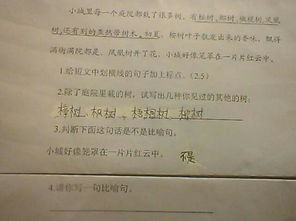 小城里每一个庭院都栽了很多树。有桉树,椰树,橄榄树,凤凰
树,还有别的亚热带树木。初夏,桉树叶子散发出来的香味,飘得
满街满院都是。凤凰树开了花,小城好像笼罩在一片片红云中。
1.给短文中划横线的句子加上标点。(2.5)
2.除了庭院里栽的树,试写出几种你见过的其他的树:
樟树、枫树、梧桐树、柳树
3.判断下面这句话是不是比喻句。
小城好像笼罩在一片片红云中。 是
4.请你写一句比喻句。